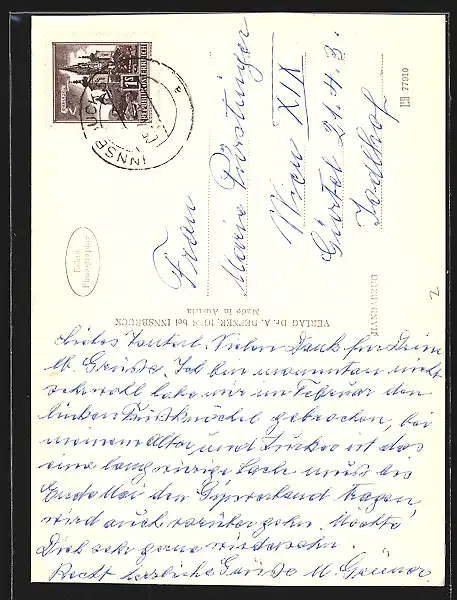 INNSBRUCK
REPUBLIK ÖSTERREICH
1S
Frau
Maria
Wien XIX
Gürtel 21.4.3.
77910
HANDABZUG
Echte
Photographie
VERLAG Dr. A. DEFNER, IGLS bei INNSBRUCK
Made in Austria
2
Liebes Vielen Dank für Deine
lb. Grüsse. Ich bin momentan nicht
sehr wohl habe mir im Februar den
linken Fußknöchel gebrochen, bei
meinem Alter, und Zucker ist das
eine langwierige Sache muss bis
Ende Mai den Gipsverband tragen,
wird auch vorüber gehn. Möchte
Dich sehr gerne wiedersehn.
Recht herzliche Grüsse M.